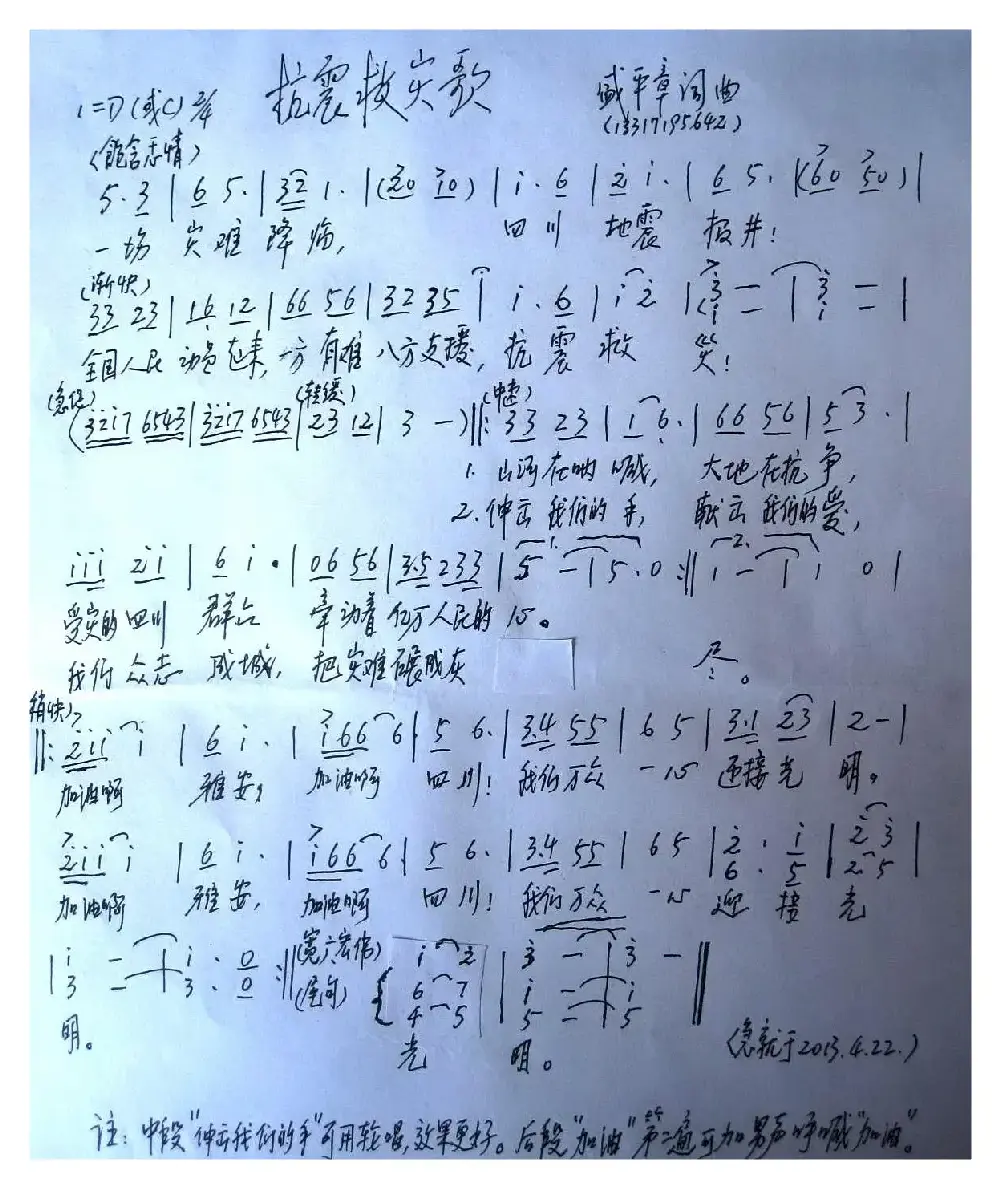 抗震救灾歌
1=D(或C) 2/4
盛平章词曲
(13317195642)
(饱含悲情)
5. 3 | 6 5. | 3 2 1. | (2 0 1 0) | i. 6 | 2 i. | 6 5. | (6 0 5 0) |
一场 灾难 降临, 四川 地震 报井!
(渐快)
33 23 | 16 12 | 66 56 | 32 35 | i. 6 | i 2 | 3 — | 3 — |
i i
全国人民 动员起来, 一方有难 八方支援, 抗震救 灾!
(急促) (转缓) (中速)
(32i7 6543 | 32i7 6543 | 23 12 | 3 —) ‖: 33 23 | 1 6. | 66 56 | 5 3. |
1. 山河在呐喊, 大地在抗争,
2. 伸出我们的手, 献出我们的爱,
1. 2.
iii 2i | 6 i. | 06 56 | 3.5 233 | 5 — | 5. 0 :‖ 1 — | 1 0 |
受灾的四川 群众 牵动着 亿万人民的 心。
我们众志 成城, 把灾难碾成灰 尽。
稍快
‖: 2ii i | 6 i. | i66 6 | 5 6. | 3.4 55 | 6 5 | 3.1 23 | 2 — |
加油啊 雅安, 加油啊 四川! 我们万众 一心 迎接光 明。
2ii i | 6 i. | i66 6 | 5 6. | 3.4 55 | 6 5 | 2. i | 2 3 |
6. 5 2 5
加油啊 雅安, 加油啊 四川! 我们万众 一心 迎 接 光
| i — | i. 0 :‖ (宽广宏伟) i 2 | 3 — | 3 — ‖
3 — | 3. 0 (尾句) 6 7 | i — | i
4 5 | 5 — | 5
明。 光 明。
(急就于2013.4.22.)
注: 中段"伸出我们的手"可用轮唱,效果更好。后段"加油"第二遍可加男声呼喊"加油"。